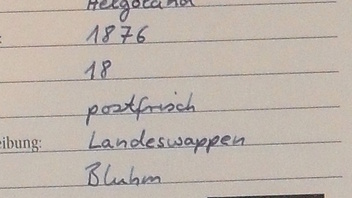 Helgoland
1876
18
postfrisch
eibung: Landeswappen
Bluhm